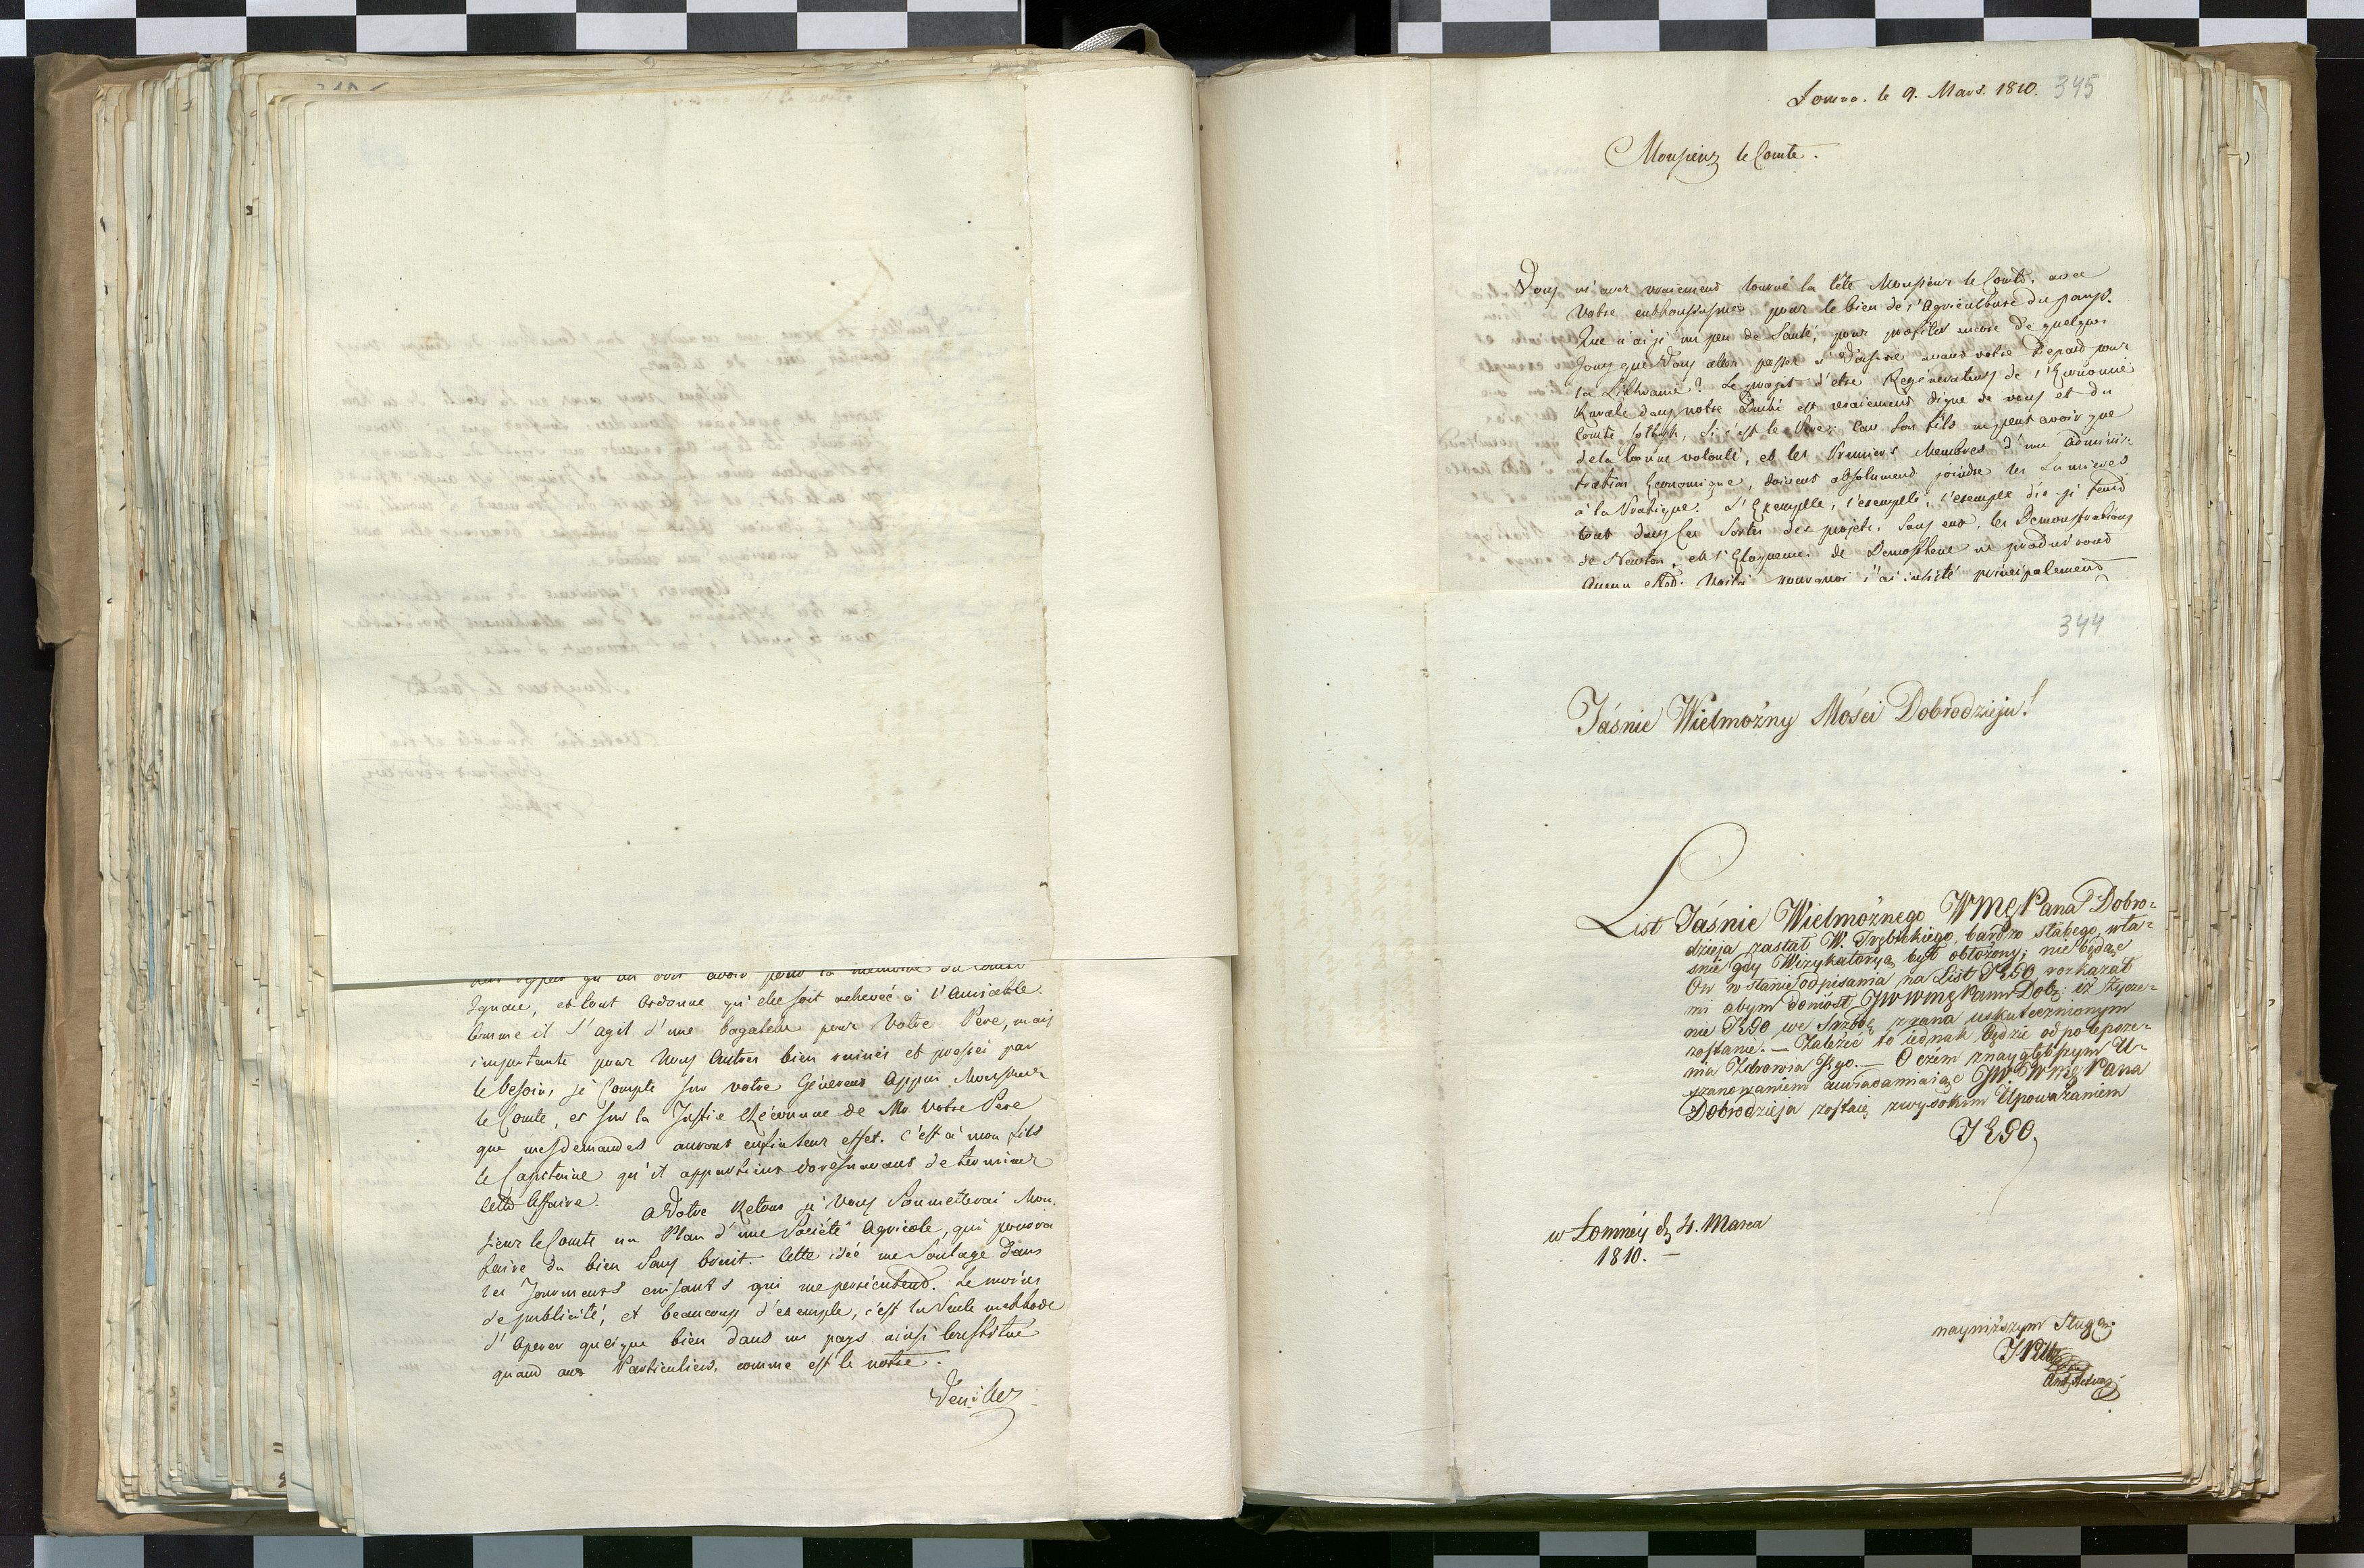 Ignace, et tout ordonne qu'elle soit achevée à l'amiable.
Comme il s'agit d'une bagatelle pour Votre Pere, mais
importante pour Nous Autres bien ruinés et pressés par
le besoin, je Compte sur votre Généreux Appui Monsieur
le Comte, et sur la Justice Reconnue de Mr. Votre Pere
que mes demandes auront enfin leur effet. C'est à mon fils
le Capitaine qu'il appartient doresnavant de terminer
cette Affaire. A Votre Retour je Vous Soumetterai Mon-
sieur le Comte un Plan d'une Société Agricole, qui pourra
faire du bien Sans bruit. Cette idée me Soulage dans
les Tourments cuisants qui me persécutend. Le moins
de publicité, et beaucoup d'exemple, c'est la Seule methode
d'Operer quelque bien dans un pays ainsi Constitué
quand aux Particuliers, comme est le notre.
345
le 9. Mars. 1810.
Monsieur le Comte.
Vous m'avez vraiement tourné la tête Monsieur le Comte, avec
Votre enthousiasme pour le bien de l'Agriculture du pays.
Que n'ai je un peu de Santé, pour profiter encore de quelques
Jours que Vous allez passer à avant votre Depard pour
la Lithuanie? Le projet d'etre Regénérateurs de l'Economie
Rurale dans notre Duché est vraiement digne de vous et du
Comte si c'est le Pere; Car Son fils ne peut avoir que
de la bonne volonté, et les Premiers Membres d'une adminis-
tration Economique, doivent absolumend joindre les Lumieres
à la Pratique. L'Exemple, l'exemple, l'exemple dis-je fend
tout dans ces Sortes des projets. Sans eux, les Demonstrations
de Newton, et l'Eloquence de Demosthene ne produiront
Aucun effet. Voila pourquoi j'ai insisté principalement
344
Jáśnie Wielmożny Mości Dobrodzieju!
List Jáśnie Wielmożnego WMę Pana Dobro-
dzieja zastał W. Trębickiego, bardzo słabego, wła-
śnie gdy Wizykatoryą był obłożony; nie będąc
On w stanie odpisania na List rozkazał
mi abym doniósł JWWmę Panu Dobr: iż życze-
nie Jego we Srzodę zrana uskutecznionym
zostanie. — Zależeć to iednak będzie od polepsze-
nia Zdrowia Jego. — O czém znaygłębszym U-
szanowaniem uwiadamiaiąc JWWmę Pana
Dobrodzieja zostaię zwysokim Upoważaniem
w Łomney d. 4. Marca
1810. —
nayniższym Sługą